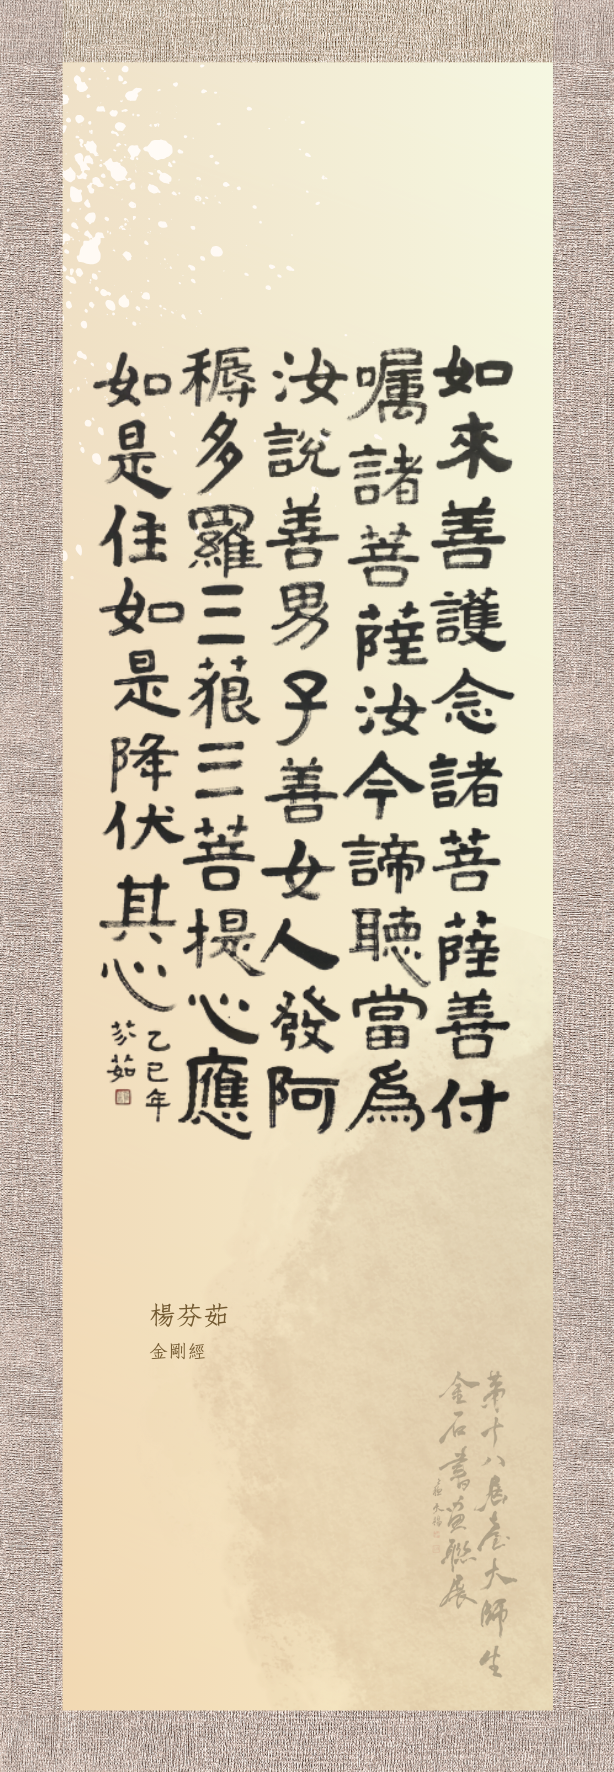 如來善護念諸菩薩善付
嘱諸菩薩汝今諦聽當爲
汝說善男子善女人發阿
耨多羅三藐三菩提心應
如是住如是降伏其心
乙巳年
芬茹
楊芬茹
金剛經
第十八屆臺大師生
金石書畫聯展